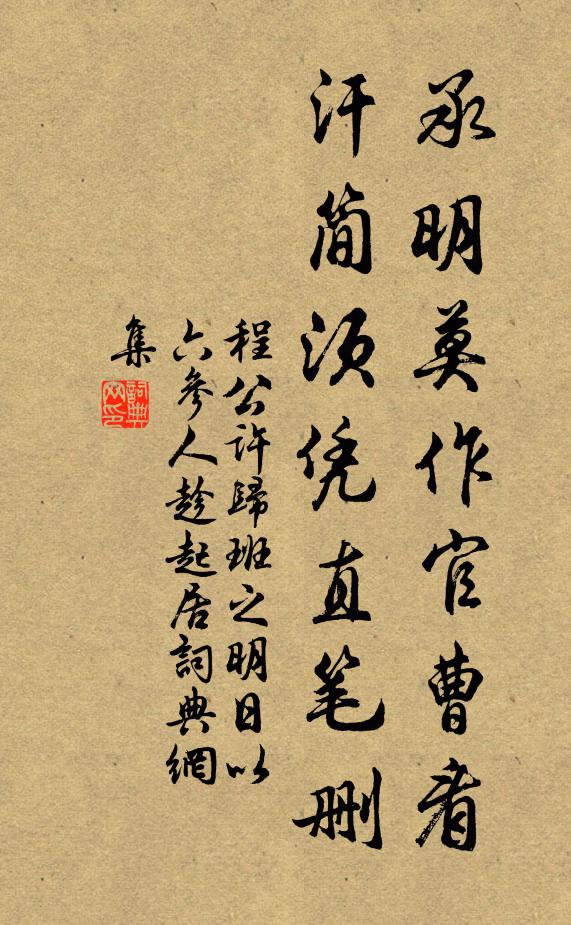 承明莫作官曹看
汗简须凭直笔删
程公许歸班之明日以
六參人趁起居詞典網
集
詞典网印